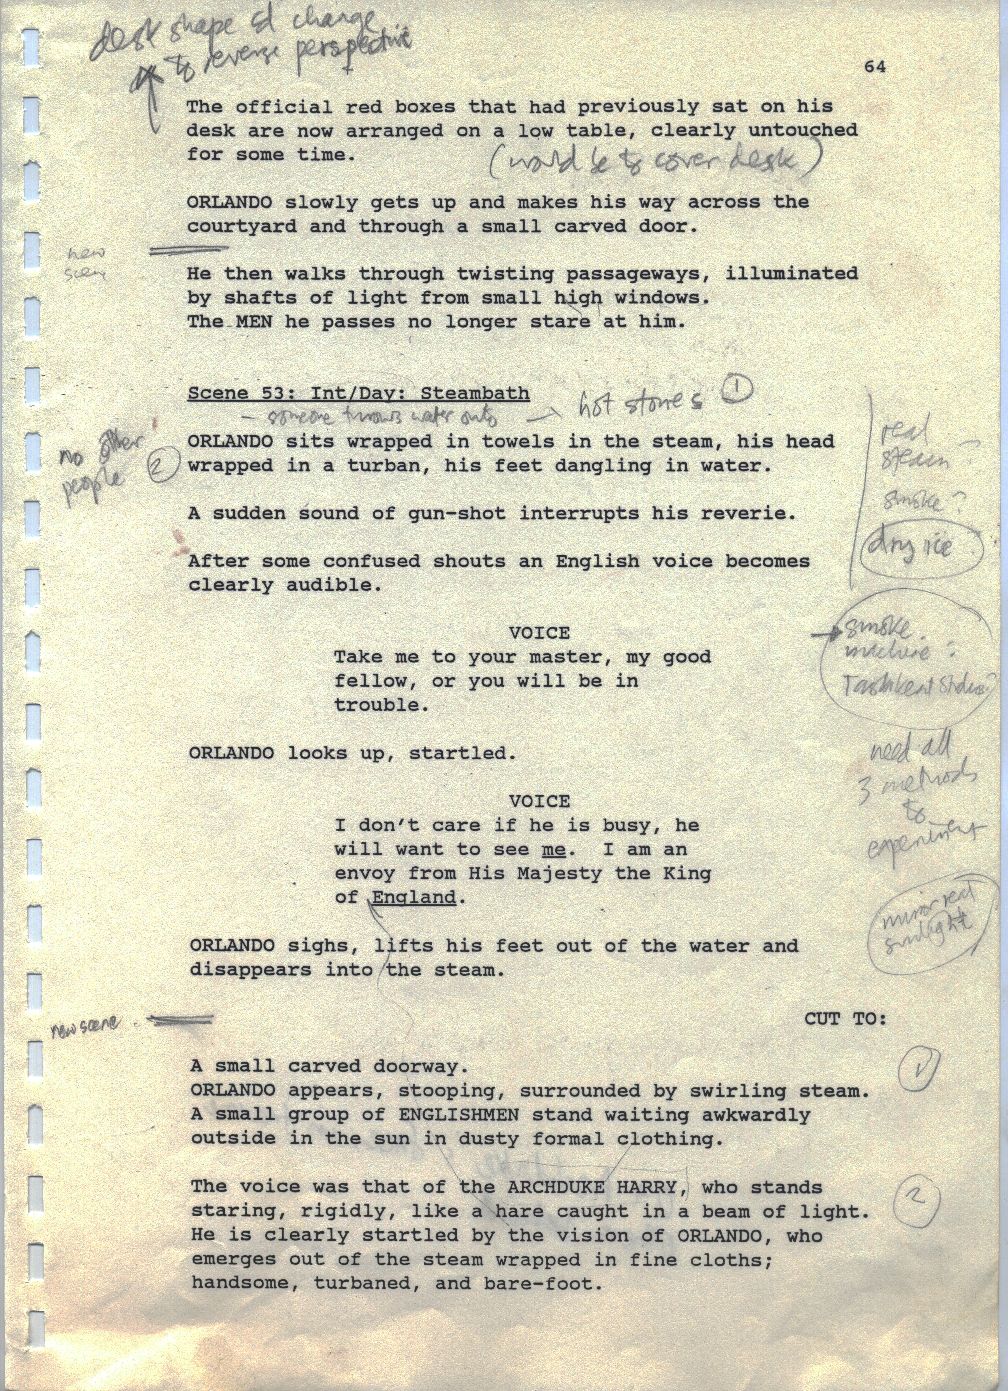 desk shape sd change
to reverse perspective
64
The official red boxes that had previously sat on his
desk are now arranged on a low table, clearly untouched
for some time.
(would be to cover desk)
ORLANDO slowly gets up and makes his way across the
courtyard and through a small carved door.
new
scene
He then walks through twisting passageways, illuminated
by shafts of light from small high windows.
The MEN he passes no longer stare at him.
Scene 53: Int/Day: Steambath
- someone throws water onto → hot stones 1
no other
people 2
ORLANDO sits wrapped in towels in the steam, his head
wrapped in a turban, his feet dangling in water.
real
steam
smoke?
dry ice
A sudden sound of gun-shot interrupts his reverie.
After some confused shouts an English voice becomes
clearly audible.
VOICE
Take me to your master, my good
fellow, or you will be in
trouble.
smoke
machine?
Tashkent Studio?
ORLANDO looks up, startled.
need all
3 methods
to
experiment
VOICE
I don't care if he is busy, he
will want to see me. I am an
envoy from His Majesty the King
of England.
mirror real
sunlight
ORLANDO sighs, lifts his feet out of the water and
disappears into the steam.
new scene
CUT TO:
A small carved doorway.
ORLANDO appears, stooping, surrounded by swirling steam.
A small group of ENGLISHMEN stand waiting awkwardly
outside in the sun in dusty formal clothing.
1
The voice was that of the ARCHDUKE HARRY, who stands
staring, rigidly, like a hare caught in a beam of light.
He is clearly startled by the vision of ORLANDO, who
emerges out of the steam wrapped in fine cloths;
handsome, turbaned, and bare-foot.
2